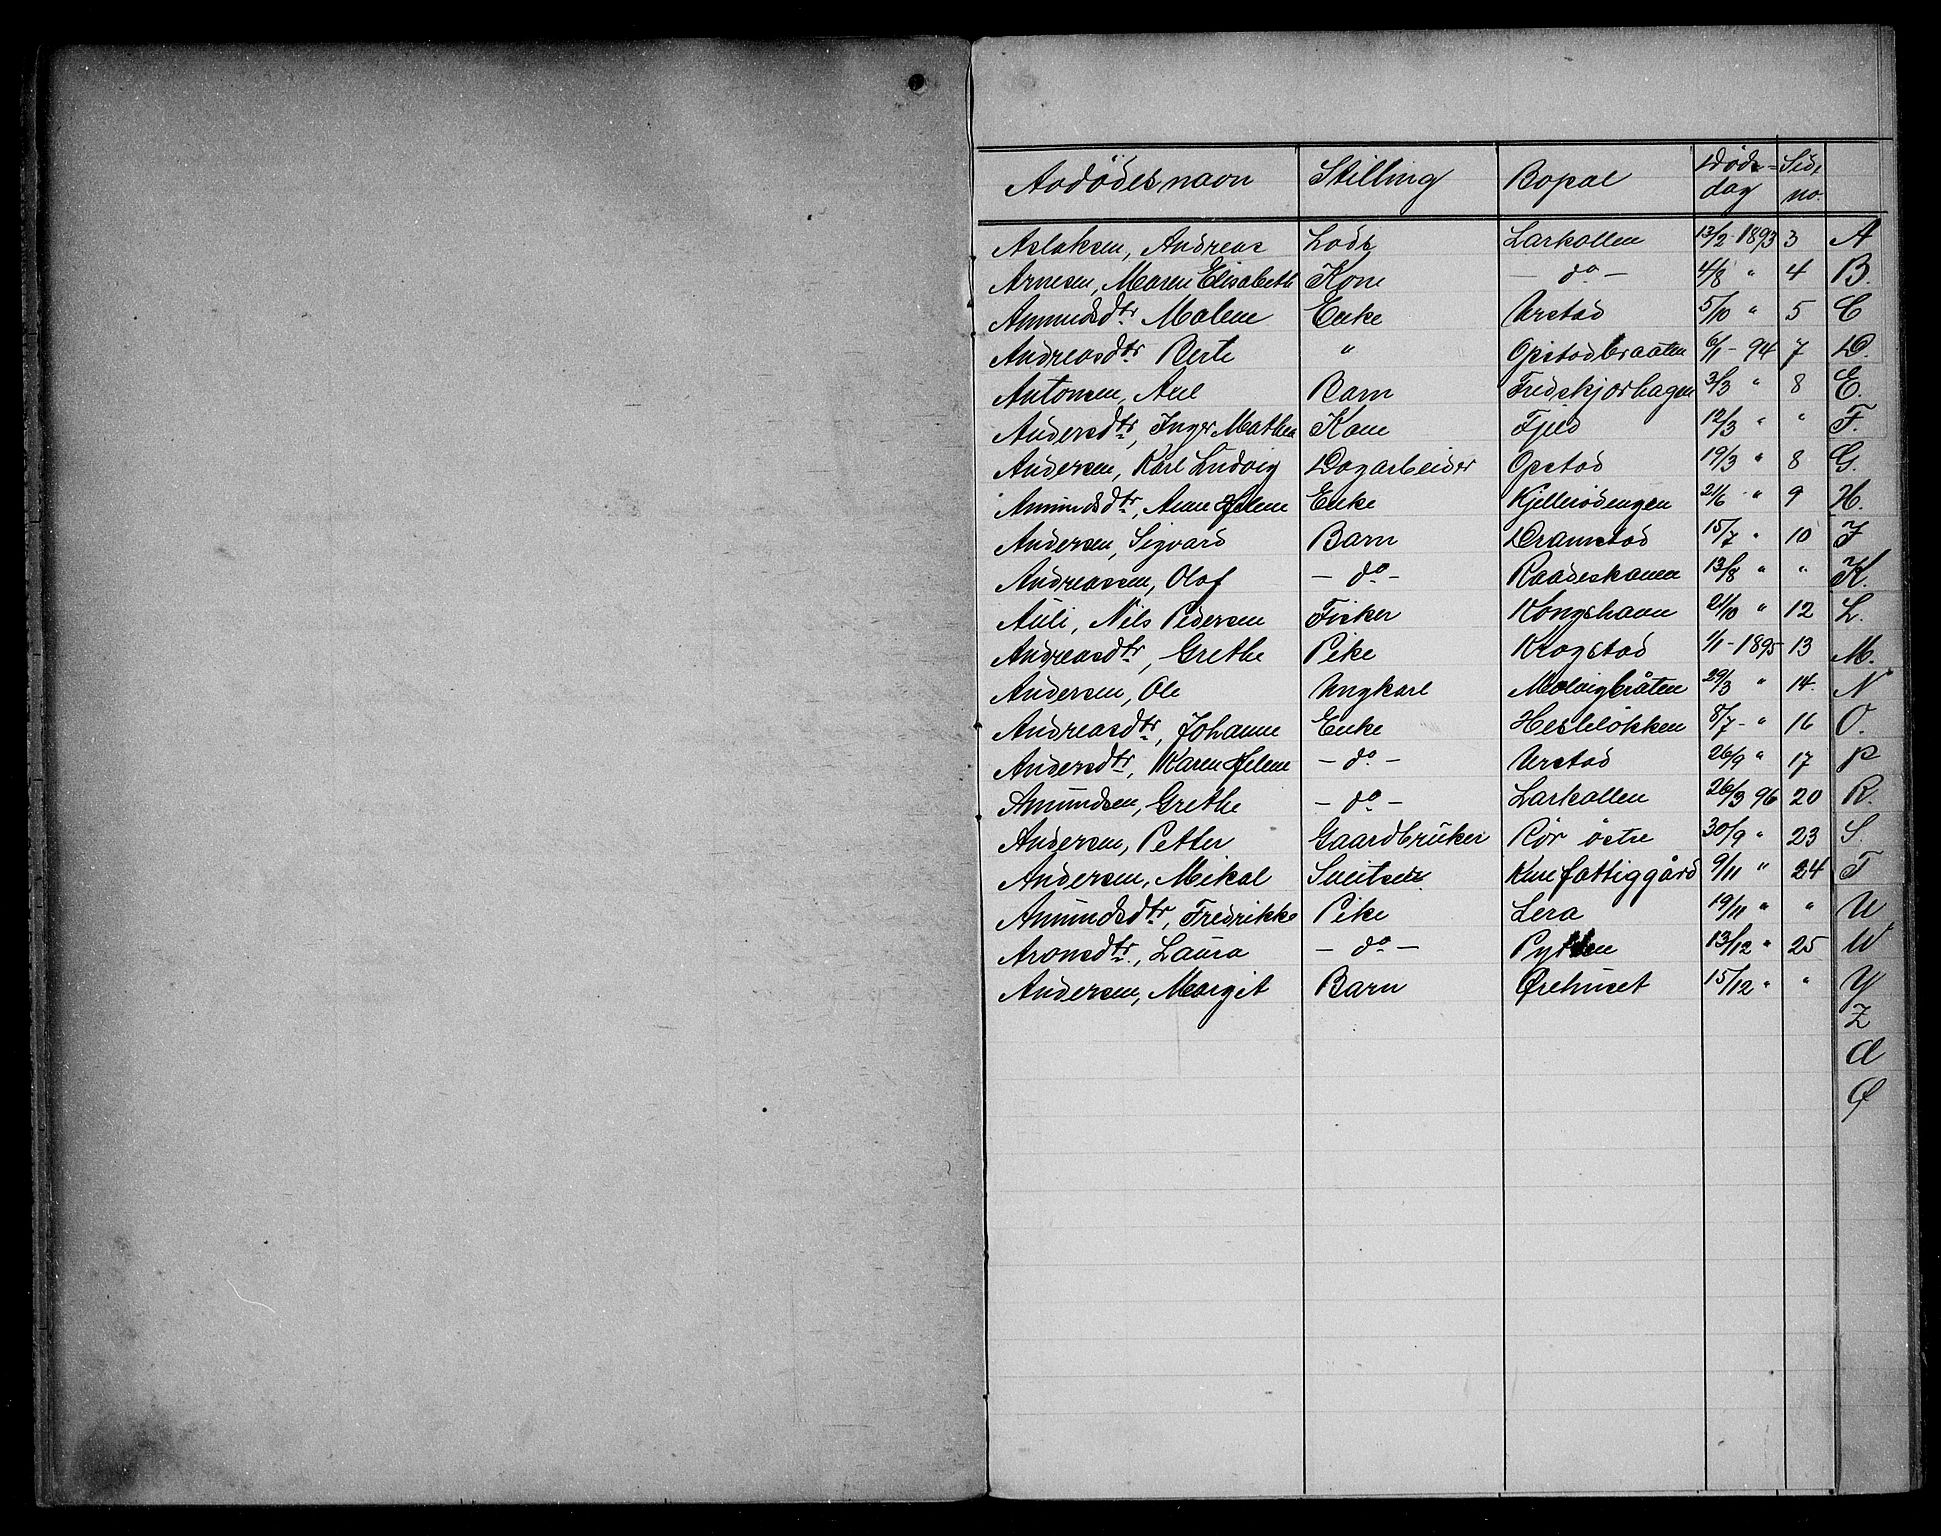 Avdödes navn Stilling Bopæl Døds= dag Side no.
Aslaksen, Andreas Lods Larkollen 13/2 - 1893 3 A
Arnesen, Maren Elisabeth Kone — do — 4/8 " 4 B.
Amundsdtr Malene Enke Vrstad 5/10 " 5 C
Andreasdtr Berte " Opstadbraaten 6/1 - 94 7 D.
Antonsen, Axel Barn Fredskjørhagen 3/3 " 8 E.
Andersdtr, Inger Mathea Kone Fjeld 12/3 " " F.
Andersen, Karl Ludvig Dagarbeider Opstad 19/3 " 8 G.
Amundsdtr, Anne Helene Enke Kjellerödengen 21/6 - " 9 H.
Andersen, Sigvard Barn Dramstad 15/7 " 10 J
Andreassen, Olaf — do — Raadeskanen 13/8 " " K.
Auli, Nils Pedersen Fisker Kongshavn 21/10 " 12 L.
Andreasdtr, Grethe Pike Krogstad 1/1 - 1895 13 M.
Andersen, Ole Ungkarl Melvigbråten 29/3 " 14. N
Andreasdtr, Johanne Enke Hesleløkken 8/7 - " 16 O.
Andersdtr, Karen Helene — do — Vrstad 26/9 " 17 P
Amundsen, Grethe — do — Larkollen 26/3 96 20 R.
Andersen, Petter Gaardbruker Rör östre 30/9 " 23 S.
Andersen, Mikal Sveitser Kurefattiggård 9/11 " 24 T
Amundsdtr, Fredrikke Pike Lera 19/11 " " U
Aronsdtr., Laura — do — Pytten 13/12 " 25 W
Andersen, Margit Barn Ørehuset 15/12 " " Y
Z
Ø